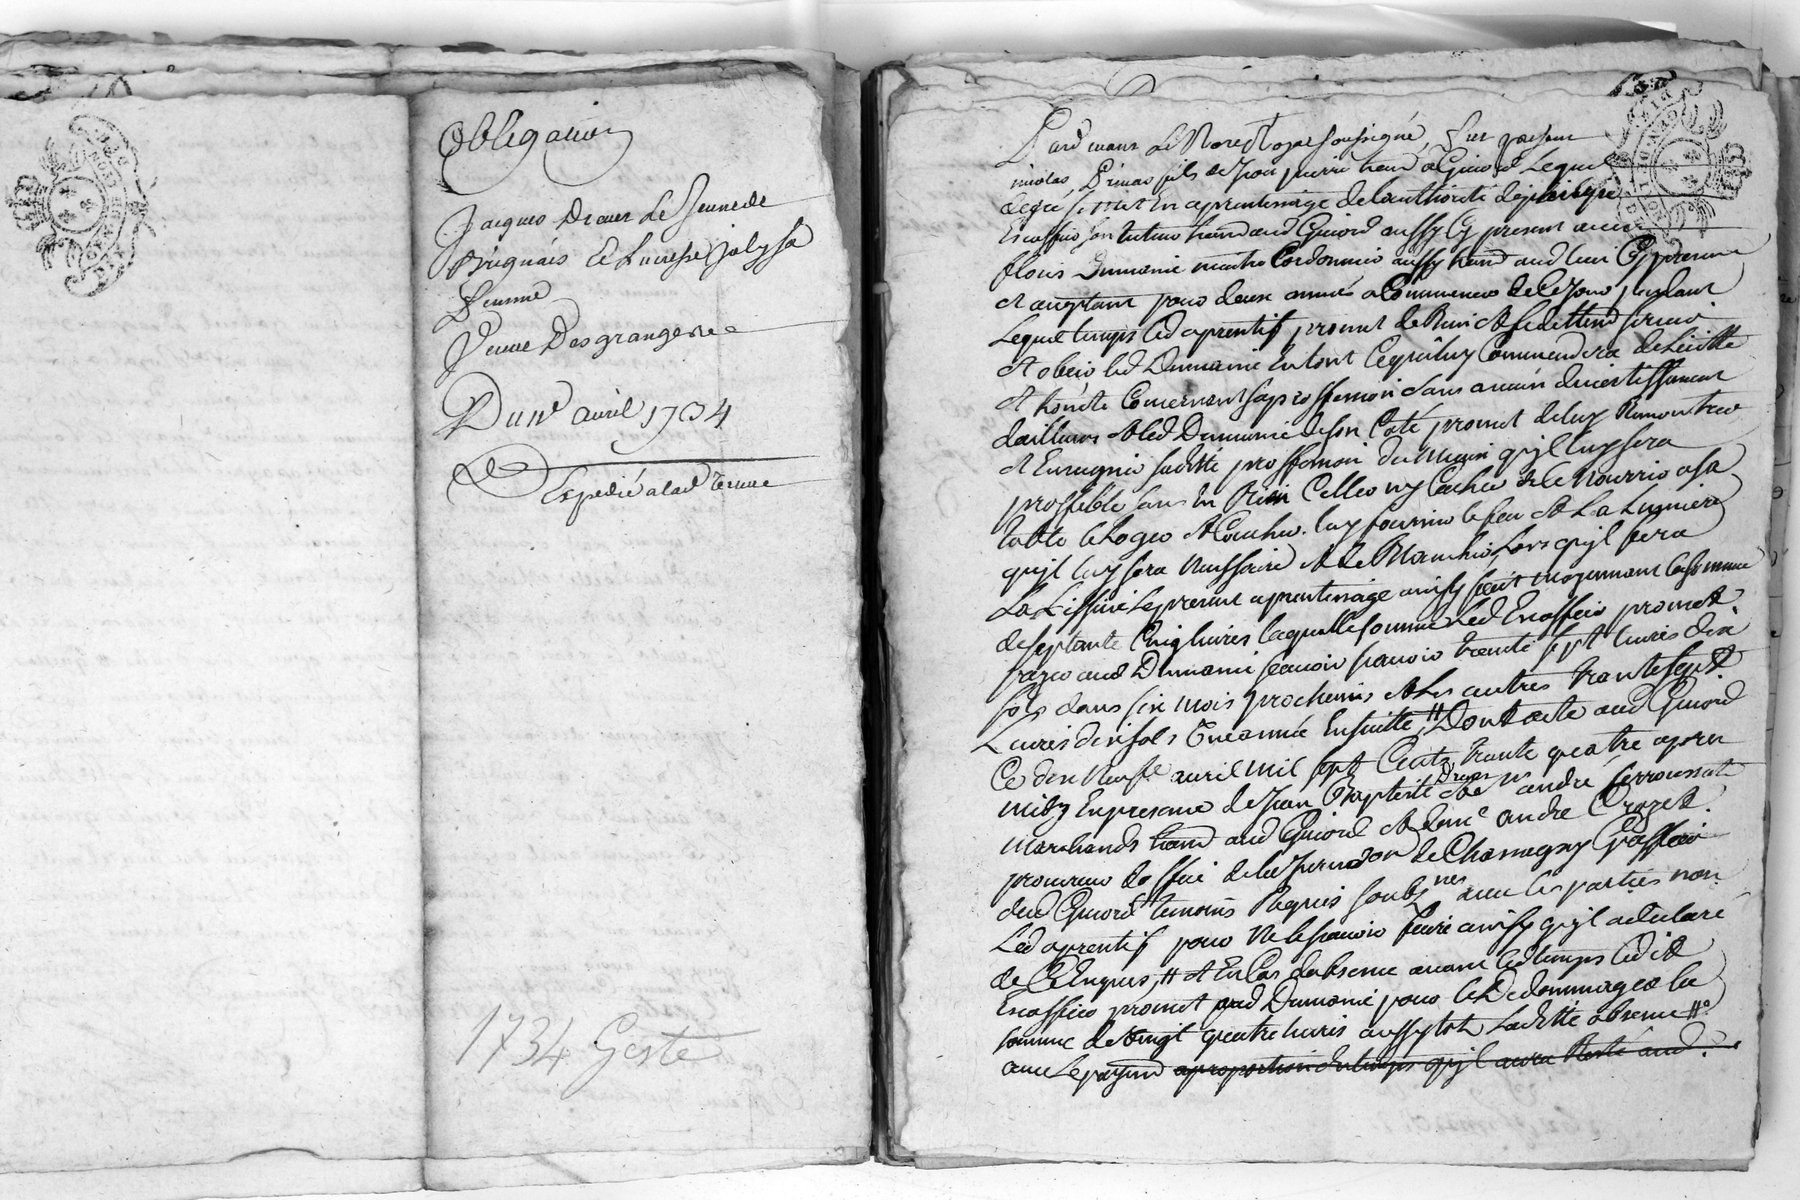 Obligation
Jacques Drever le Jeune de
Brignais et Lucresse joly sa
femme
Veuve Desgranges
Du 1er avril 1734
Expedié a lad veuve
1734 Geste
Pardevant le No.re Royal soussigné, fut présent
nicolas Primas fils de Jean pierre hant a Givord Lequel
de gré se met en aprentissage de lauthorité de
Escoffier son tuteur hant aud Givord aussy cy present avec
flouis Dumanié maitre Cordonnier aussy hant aud lieu Cy present
et acceptant pour deux années a Commencer de Ce Jour pendant
Lequel temps led aprentif promet de bien et fidellem servir
et obeir led Dumanié en tout Ce quil luy Commendera de Licitte
et honete Concernant sa proffession sans aucun divertissement
dailleurs et led Dumanié de son Coté promet de luy Remontrer
et Enseigner ladtte proffession du mieux quil luy sera
possible sans en Rien Celler ny Cacher de le Nourrir a sa
table le Loger et Coucher luy fournir le feu et La Lumiere
quil luy sera necessaire et le Blanchir Lors quil sera
Le present aprentissage ainsy fait moyennant la somme
de septante Cinq livres laquelle somme led Escoffier promet
payer aud Dumanié scavoir trente sept livres dix
sols dans six mois prochains et Les autres trante sept
Livres dix sols Une année Ensuitte, # Dont acte aud Givord
Ce dix Neuf avril mil sept Cents trante quatre apres
midy En presence de Jean Baptiste andré ferroussat
marchands hant aud Givord et de me andre Crozet
procureur doffice de la Jurisdon de Chassagny Greffier
dud Givord temoins Requis soubz.nes avec les parties non
Led aprentif pour ne le scavoir faire ainsy quil a declaré
de Ce Enquis, # et En Cas dabsence avant led temps ledit
Escoffier promet aud Dumanié pour le Dedommager la
somme de vingt quatre livres aussytot Ladtte absence #
avec Le a proportion du temps quil aura Resté aud.